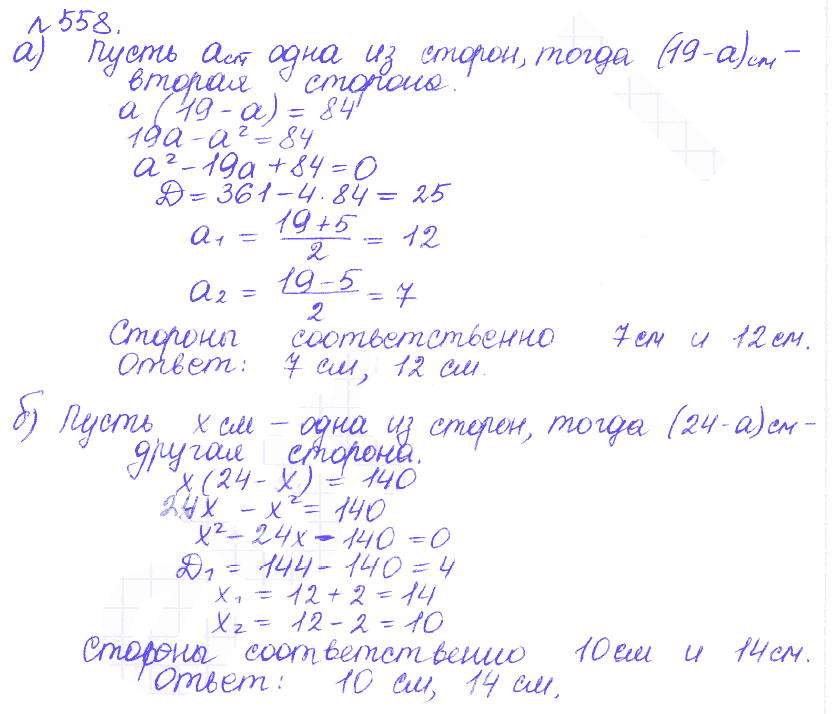 №558.
а) Пусть а см одна из сторон, тогда (19-а) см –
вторая сторона.
а (19 - а) = 84
19а - а² = 84
а² - 19а + 84 = 0
Д = 361 - 4 · 84 = 25
а₁ = (19+5)/2 = 12
а₂ = (19-5)/2 = 7
Стороны соответственно 7 см и 12 см.
Ответ: 7 см, 12 см.
б) Пусть х см – одна из сторон, тогда (24-а) см –
другая сторона.
х (24 - х) = 140
24х - х² = 140
х² - 24х - 140 = 0
Д₁ = 144 - 140 = 4
х₁ = 12 + 2 = 14
х₂ = 12 - 2 = 10
Стороны соответственно 10 см и 14 см.
Ответ: 10 см, 14 см.